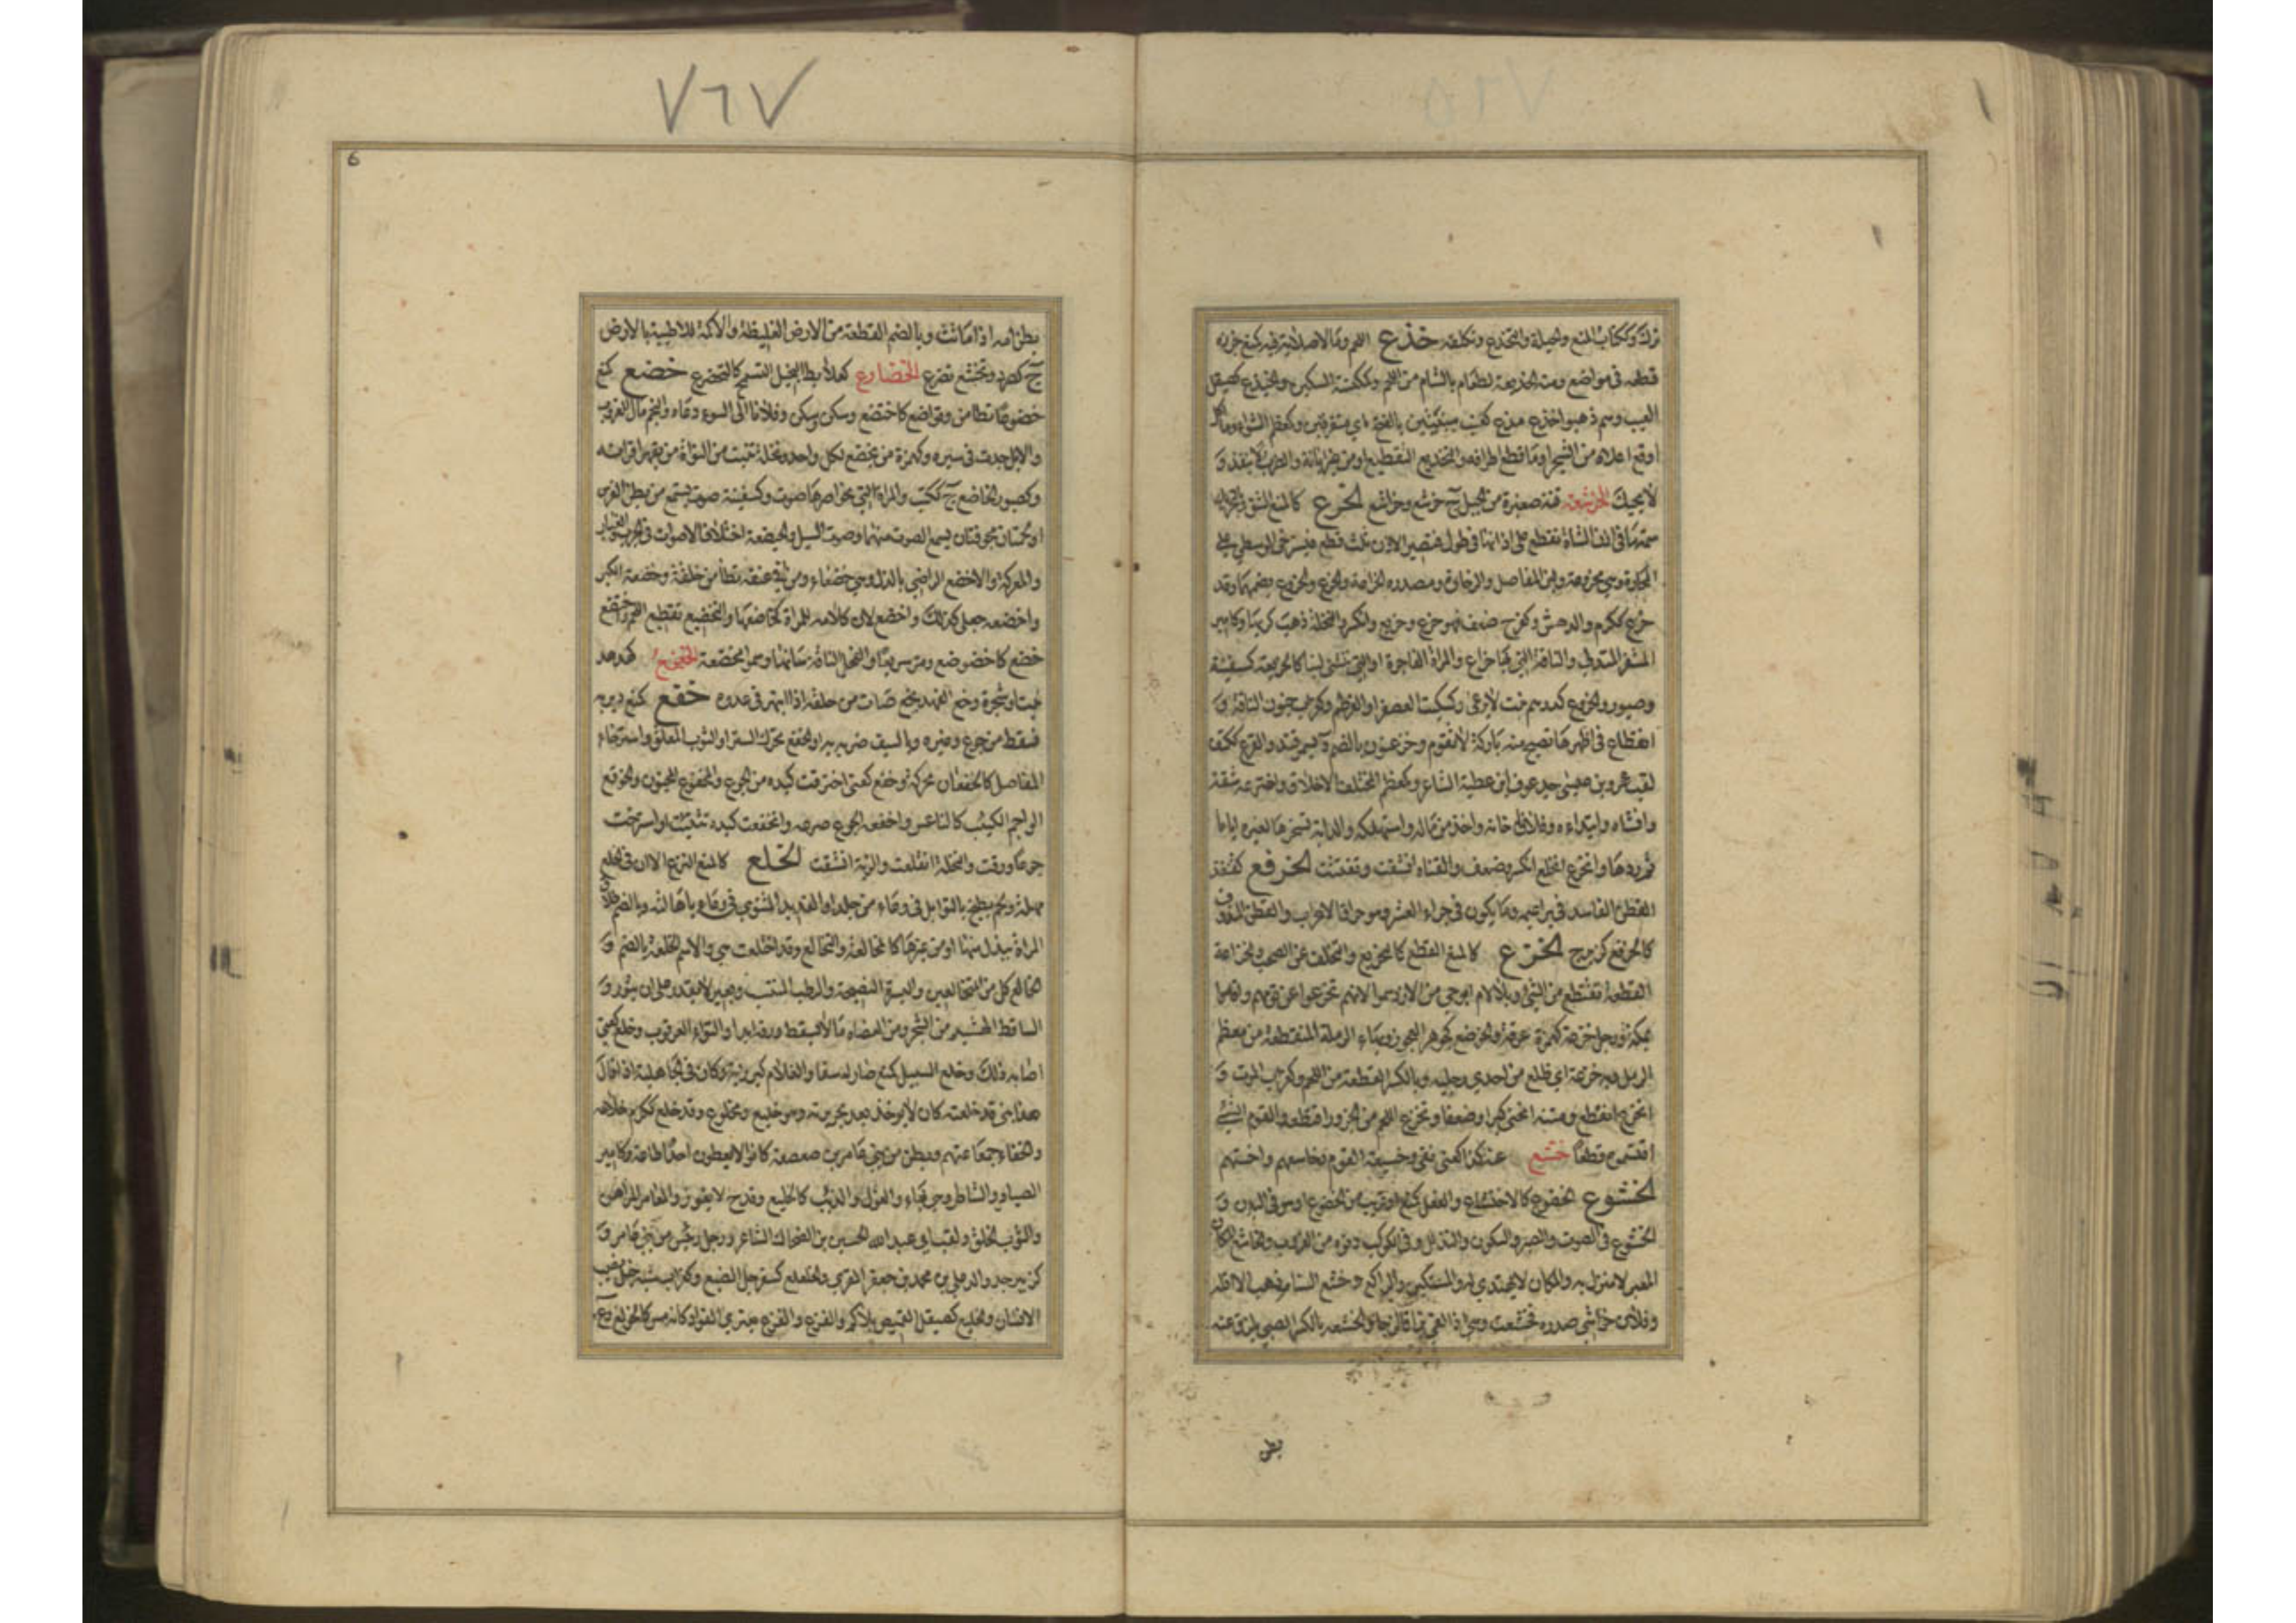 ترك وككتاب المنع والحيلة والتخدع وتكلفه خذع اللحم وما لا صلابة فيه كمنع حززه
قطعه في مواضع ومنه الخذيعة لطعام بالشام من اللحم وكمكنسة السكين والخيذع كصيقل
العيب وسم ذهبوا خذع مذع كعنب مبنيتين بالفتح اي متفرقين وكمعظم الشواء وما اكل
اوقطع اعلاه من الشجر او ما قطع اطرافه والتخذيع التقطيع او من غير ابانة والضرب لا ينفذ و
لا يحيك الخرشعة قنة صغيرة من الجبل ج خرشع وخراشع الخرع كالمنع الشق
سمة في اذن الشاة تقطع على اذنها في طول فتصير الاذن ثلث قطع فتسترخي الوسطى على
المحارة وهي مخروعة ولين المفاصل والرخاوة ومصدره الخراعة والخرع والخروع بضمهما وقد
خرع ككرم والدهش وكفرح ضعف فهو خرع وخريع وانكسر والنخلة ذهب كربها وكامير
المشفر المتدلي والناقة التي بها خراع والمراة الفاجرة او التي تتثنى لينا كالخريعة كسفينة
وصبور والخروع كدرهم نبت لا يرعى وكسكيت العصفر او القرطم وكغراب جنون الناقة و
انقطاع في ظهرها تصبح منه باركة لا تقوم وخرعون بالضم ة بسمرقند والخرع ككتف
لقب عمرو بن عبس جد عوف ابن عطية الشاعر وكمعظم المختلف الاخلاق واخترعه شقه
وانشاه وابتداه وفلانا خانه واخذ من ماله واستهلكه والدابة تسخرها لغيره اياما
ثم ردها وانخرع انخلع انكسر وضعف والقناة انشقت وتفتتت الخرفع كقنفذ
القطن الفاسد في براعيمه وما يكون في جراء العشر وهو حراق الاعراب والقطن المندوف
كالخرفع كزبرج الخزع كالمنع القطع كالتخزيع والتخلف عن الصحب وخزاعة
القطعة تقتطع من الشيء وبلا لام ابو حي من الازد سموا لانهم تخزعوا عن قومهم واقاموا
بمكة ورجل خزعة كهمزة عوقة والخوزع كجوهر العجوز وبهاء الرملة المنقطعة من معظم
الرمل وبه خزعة اي ظلع من احدى رجليه وبالكسر القطعة من اللحم وكغراب الموت و
انخزع انقطع ومتنه انحنى كبرا وضعفا وتخزع اللحم من الجزور اقتطعه والقوم الشيء
اقتسموه قطعا خشع عنه كذا كعنى نفي وخسيعة القوم وخاسعهم واخسهم
الخشوع الخضوع كالاختشاع والفعل كمنع او قريب من الخضوع او هو في البدن و
الخشوع في الصوت والبصر والسكون والتذلل وفي الكوكب دنوه من الغروب والخاشع المكان
المغبر لا منزل به والمكان لا يهتدى له والمستكين والراكع وخشع السنام ذهب الا اقله
وفلان خراشي صدره فخشعت وهي اذا القى بزاقا لزجا والخشعة بالكسر الصبي يلزق عنه
بطن
٧٦٧
6
بطن امه اذا ماتت وبالضم القطعة من الارض الغليظة والاكمة اللاطية بالارض
ج كصرد وتخشع تضرع الخضارع كعلابط البخيل المتسمح كالتخضرع خضع كمنع
خضوعا تطامن وتواضع كاختضع وسكن وسكن وفلانا الى السوء دعاه والنجم مال للغروب
والابل جدت في سيره وكهمزة من يخضع لكل واحد ونخلة تنبت من النواة من يقهر اقرانه
وكصبور الخاضع ج ككتب والمراة التي بخواصرها صوت وكسفينة صوت يسمع من بطن الفرس
او لحمتان مجوفتان يسمع الصوت منهما وصوت السيل والخيضعة اختلاف الاصوات في الحرب والغبار
والمعركة والاخضع الراضي بالذل وهي خضعاء ومن في عنقه تطامن خلقة وخضعه الكبر
واخضعه جعله كذلك واخضع لان كلامه للمراة كخاضعها والتخضيع تقطيع اللحم واختضع
خضع كاخضوضع ومر سريعا والفحل الناقة سانها وسموا مخضعة الخعخع كهدهد
نبت او شجرة وخع الفهد يخع صات من حلقه اذا انبهر في عدوه خفع كمنع دير به
فسقط من جوع وغيره وبالسيف ضربه به والخفع تحرك الستر او الثوب المعلق واسترخاء
المفاصل كالخفعان محركة وخفع كعنى احترقت كبده من الجوع والمخفوع المجنون والخوفع
الواجم الكئيب كالناعس واخفعه الجوع صرعه وانخفعت كبده تثنيت واسترخت
جوعا ورقت والنخلة انقلعت والرية انشقت الخلع كالمنع النزع الا ان في الخلع
مهلة ولحم يطبخ بالتوابل في وعاء من جلد او القديد المشوي في وعاء باهالته وبالضم طلاق
المراة ببذل منها او من غيرها كالمخالعة والتخالع وقد اختلعت هي والاسم الخلعة بالضم و
الخالع كل من المتخالعين والبسرة النضيجة والرطب المنسبت وبعير لا يقدر على ان يثور و
الساقط الهشيم من الشجر ومن العضاه ما لا يسقط ورقه ابدا والتواء العرقوب وخلع كعنى
اصابه ذلك وخلع السنبل كمنع صار له سفا والغلام كبر زبه وكان في الجاهلية اذا قال
هذا ابني قد خلعته كان لا يوخذ بعد بجريرته وهو خليع ومخلوع وقد خلع ككرم خلاعة
والخلعاء جماعتهم وبطن من بني عامر بن صعصعة كانوا لا يعطون احدا طاعة وكامير
الصياد والشاطر وهي بهاء والغول والذئب كالخليع وقدح لا يفوز والمقامر المراهن
والثوب الخلق ولقب ابي عبد الله الحسين بن الضحاك الشاعر ورجل رئيس من بني عامر و
كزبير جد والد علي بن محمد بن جعفر المقرئ والخلعلع كسفرجل الضبع وكغراب شبه خبل يصيب
الانسان والخيلع كصيقل القميص بلا كم والفزع والفزع يعتري الفواد كانه مس كالخولع